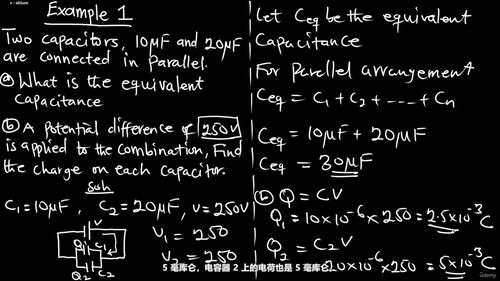 Example 1
Two capacitors, 10μF and 20μF
are connected in parallel.
ⓐ What is the equivalent
capacitance
ⓑ A potential difference of 250V
is applied to the combination, Find
the charge on each capacitor.
Soln
C₁=10μF, C₂=20μF, V=250V
V
Q₁ C₁
Q₂ C₂
V₁ = 250
V₂ = 250
Let Ceq be the equivalent
Capacitance
For parallel arrangement
Ceq = C₁ + C₂ + ---- + Cn
Ceq = 10μF + 20μF
Ceq = 30μF
ⓑ Q = CV
Q₁ = 10×10⁻⁶ × 250 = 2.5×10⁻³C
Q₂ = C₂V
= 20×10⁻⁶ × 250 = 5×10⁻³C
5 毫库仑，电容器 2 上的电荷也是 5 毫库仑
Udemy